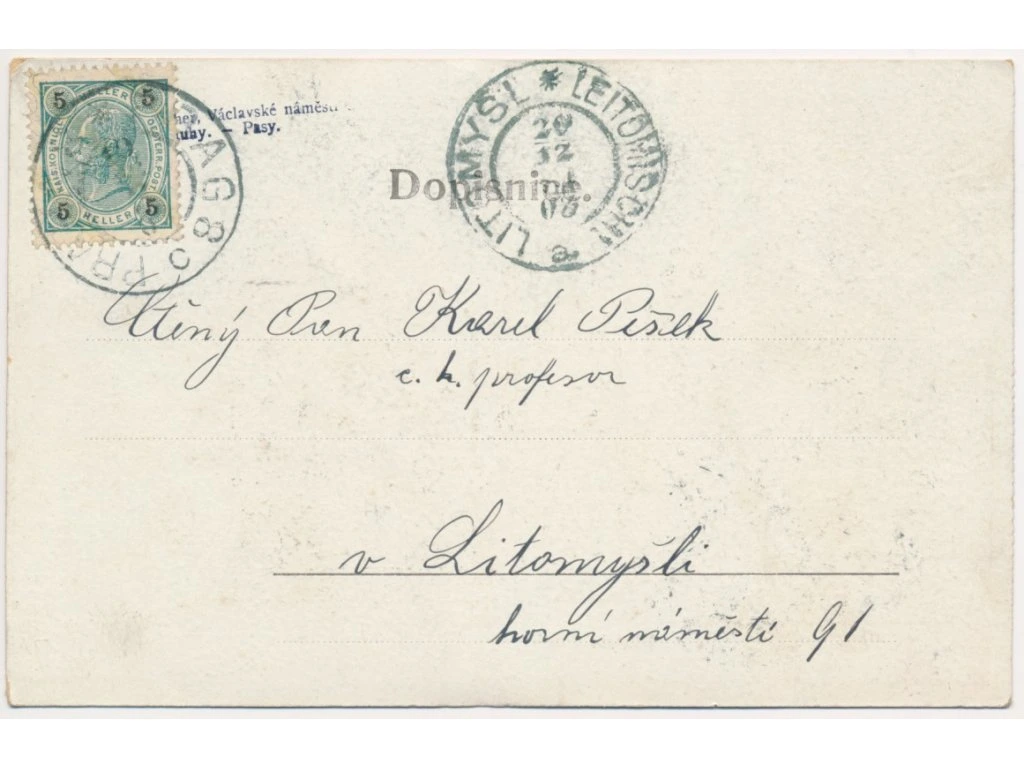 5 HELLER 5
KAIS. KOENIGL. OESTERR. POST.
5 HELLER 5
PRAG 8
Václavské náměstí
Pasy.
LITOMYŠL * LEITOMISCHL
20
12
Dopisnice.
Ctěný Pan Karel Pešek
c. k. profesor
v Litomyšli
horní náměstí 91